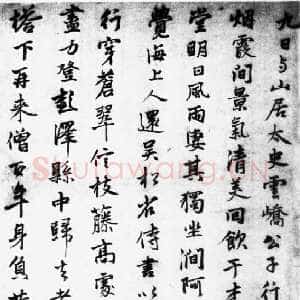 九日与山居太史雲嶠公子行
烟霞間景氣清美回飲于
堂明日風雨凄其獨坐澗阿
覺海上人還吴省侍書以
行穿蒼翠信枝藤高處
盡力登彭澤縣中歸去
塔下再来僧百年身負
Shufawang.CN